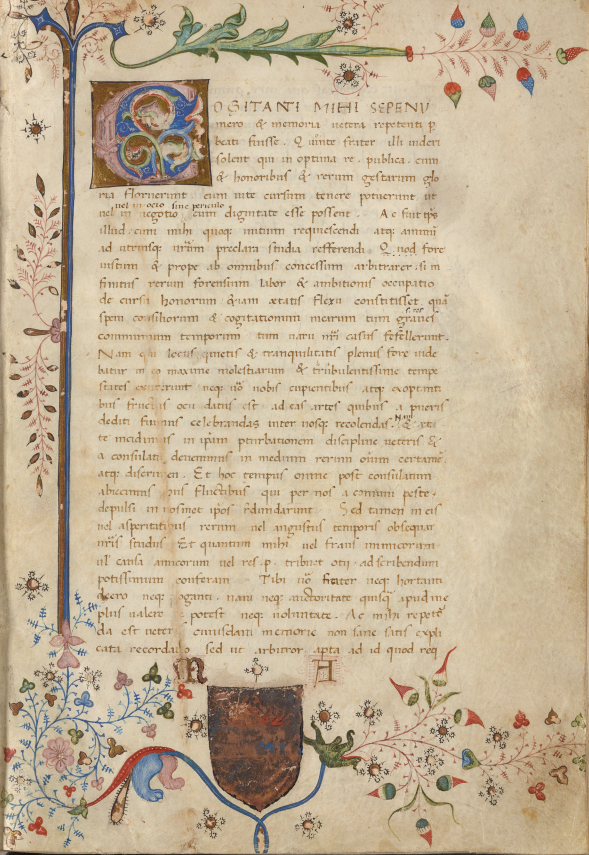 COGITANTI MIHI SEPENU
mero & memoria uetera repetenti p
beati fuisse. Quinte frater illi uideri
solent qui in optima re. publica. cum
& honoribus & rerum gestarum glo
ria floruerunt eum uite cursum tenere potuerunt ut
uel in ocio sine periculo
uel in negotio cum dignitate esse possent. Ac fuit tps
illud cum mihi quoq initium requiescendi atq animi
ad utriusq nrum preclara studia refferendi Quod fore
iustum & prope ab omnibus concessum arbitrarer. si in
finitus rerum forensium labor & ambitionis occupatio
de cursu honorum etatis flexu constitisset. quā
spem consiliorum & cogitationum mearum tum graues
communium temporum tum nri casus fefellerunt.
Nam qui locus quietis & tranquilitatis plenus fore uide
batur in eo maxime molestiarum & turbulentissime tempe
states neq uo nobis cupientibus atq exoptanti
bus fructus ocii datus est. ad eas artes quibus a pueris
dediti fuimus celebrandas inter nosq recolendas.
te incidimus in ipam pturbationem discipline ueteris &
a consulatu deuenimus in medium rerum oium certamē.
atq discrimen. Et hoc tempus omne post consulatum
fluctibus qui per nos a comuni peste.
depulsi in nosmet ipos redundarunt. Sed tamen in eis
uel asperitatibus rerum uel angustiis temporis obsequar
nris studiis Et quantum mihi uel fraus inimicorum
ul' causa amicorum uel res.p. tribuet otii ad scribendum
potissimum conferam. Tibi uo frater neq hortanti
deero neq roganti. nam neq auctoritate quisq apud me
plus ualere potest neq uoluntate. Ac mihi repete
da est ueteris cuiusdam memorie non sane satis expli
cata recordatio sed ut arbitror apta ad id quod req
N A